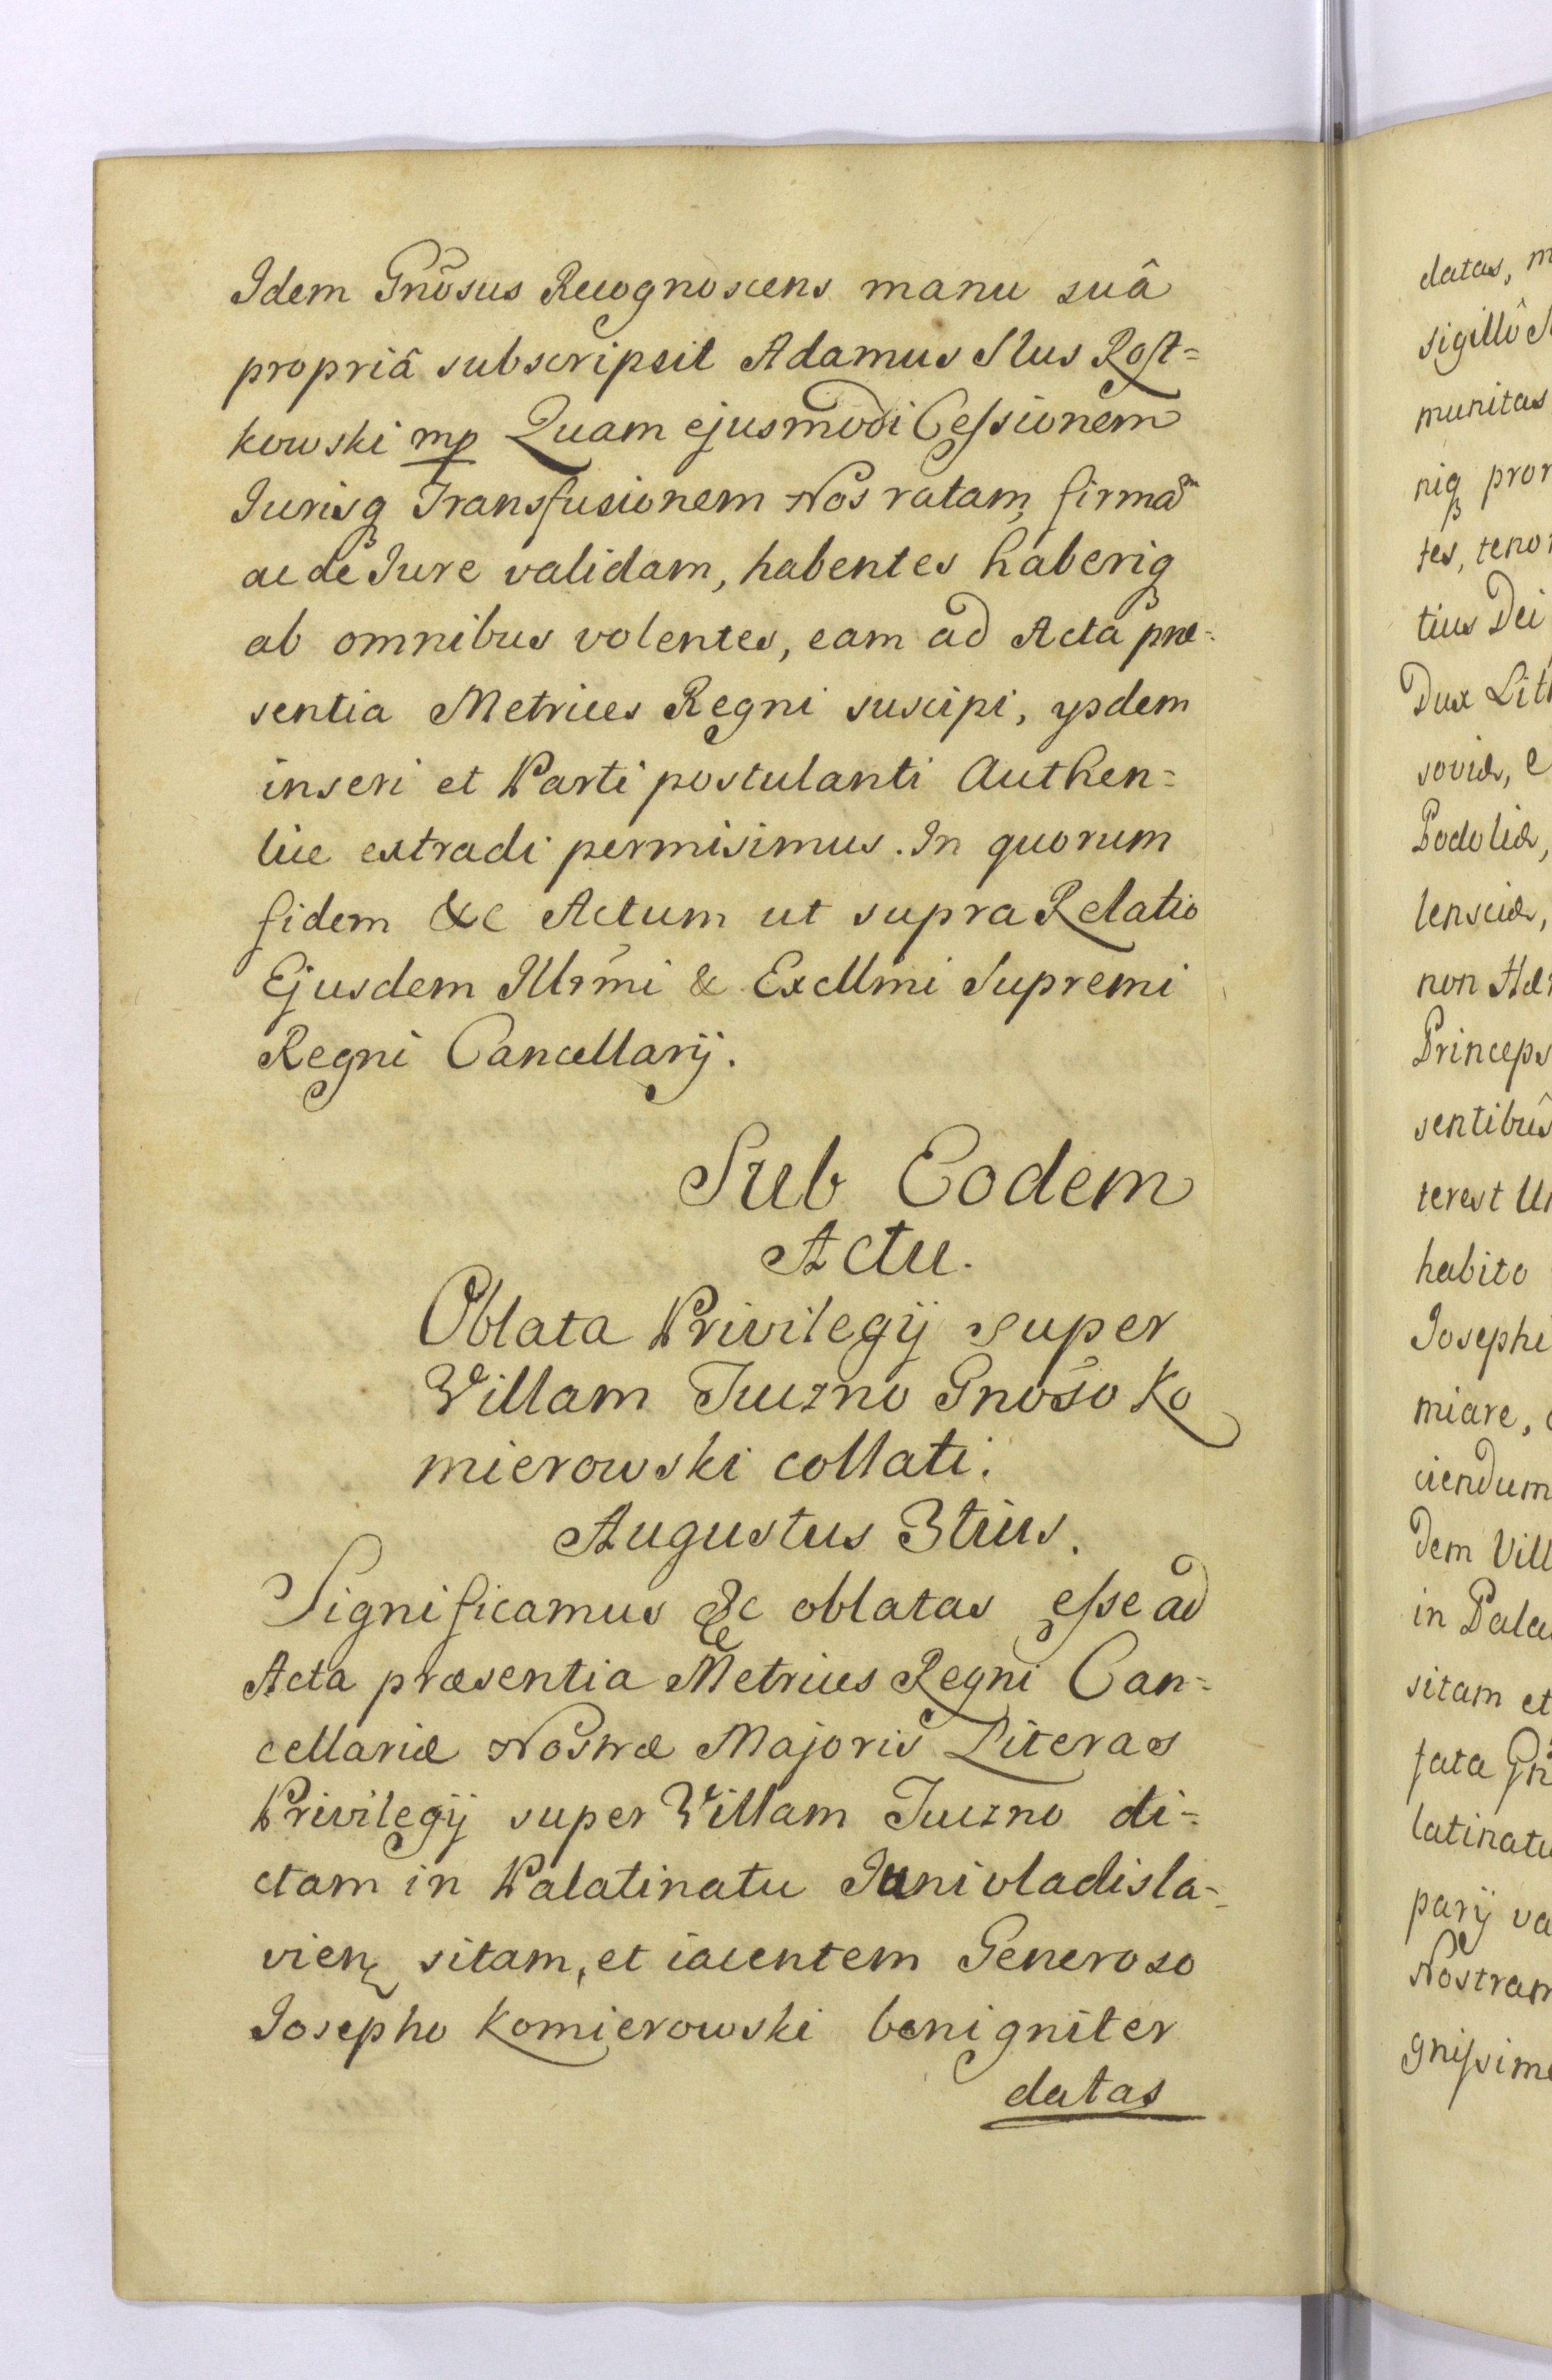 Idem Gnõsus Recognoscens manu suâ
propriâ subscripsit Adamus Slus Rost=
kowski mp Quam ejusmodi Cessionem
Jurisq Transfusionem Nos ratam, firmam
ac de Jure validam, habentes haberiq
ab omnibus volentes, eam ad Acta præ=
sentia Metrices Regni suscipi, ijsdem
inseri et Parti postulanti Authen=
tice extradi permisimus. In quorum
fidem &c Actum ut supra Relatio
Ejusdem Illrmi & Excllmi Supremi
Regni Cancellarij.
Sub Eodem
Actu.
Oblata Privilegij super
Villam Tuczno Gnoso Ko
mierowski collati.
Augustus 3tius.
Significamus &c oblatas esse ad
Acta præsentia Metrices Regni Can=
cellariæ Nostræ Majoris Literas
Privilegij super Villam Tuczno di=
ctam in Palatinatu Junivladisla=
vien sitam, et iacentem Generoso
Josepho Komierowski benigniter
datas
datas, m
sigillô
munitas
niq pror
tes, tenor
tius Dei
Dux Lith
soviæ, e
Podoliæ,
lensciæ,
non Hær
Princeps
sentibûs
terest Un
habito
Josephi
miare,
ciendum
dem Vill
in Pala
sitam et
fata Gn
latinatu
parij va
Nostram
gnissime